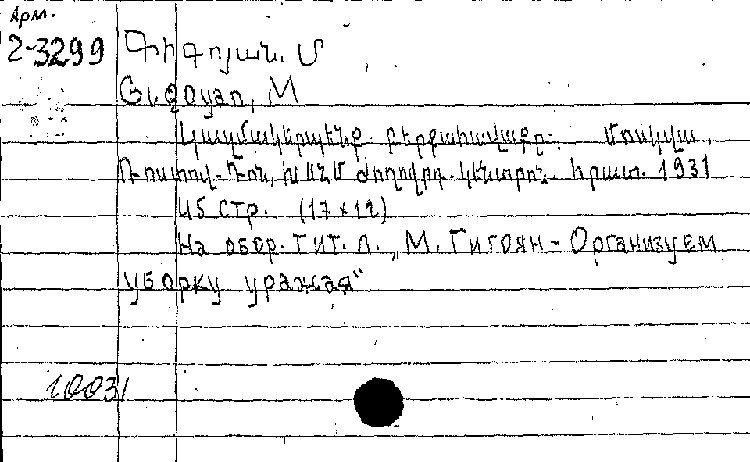 Арм.
2-3299 Գիգոյան. Մ
Gigoyan, M
Կազմակերպենք բերքահավաքը. Մոսկվա,
Ռոստով-Դոն, ԽՍՀՄ ժողովրդ. կենտրոն. հրատ. 1931
45 стр. (17x12)
На обор. тит. л. „М. Гигоян - Организуем
уборку урожая"
10031